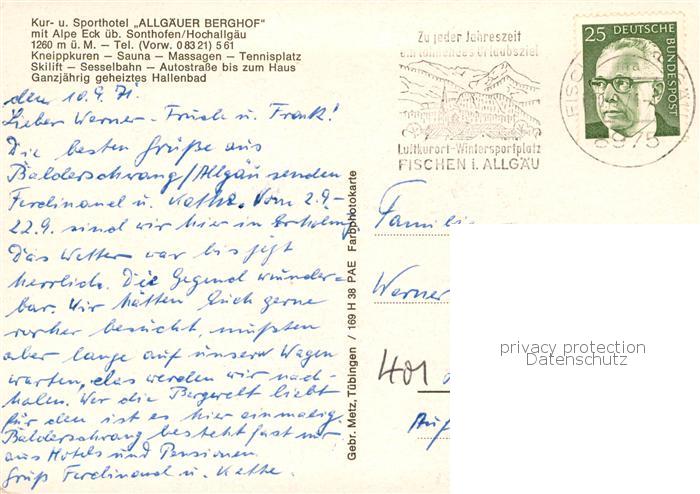 Kur- u. Sporthotel „ALLGÄUER BERGHOF"
mit Alpe Eck üb. Sonthofen/Hochallgäu
1260 m ü. M. — Tel. (Vorw. 0 83 21) 5 61
Kneippkuren — Sauna — Massagen — Tennisplatz
Skilift — Sesselbahn — Autostraße bis zum Haus
Ganzjährig geheiztes Hallenbad
den 10.9.71.
Lieber Werner - u. Frank!
Die besten Grüße aus
Balderschwang/Allgäu senden
Ferdinand u. Käthe. Vom 2.9.-
22.9. sind wir hier in Erholung
Das Wetter war bis jetzt
herrlich. Die Gegend wunder-
bar. Wir hätten Euch gerne
vorher besucht, mußten
aber lange auf unsern Wagen
warten, das werden wir nach-
holen. Wer die Bergwelt liebt
für den ist es hier einmalig.
Balderschwang besteht fast nur
aus Hotels und Pensionen.
Gruß Ferdinand u. Käthe.
Gebr. Metz, Tübingen / 169 H 38 PAE Farbphotokarte
Zu jeder Jahreszeit
ein lohnendes Urlaubsziel
Luftkurort-Wintersportplatz
FISCHEN i. ALLGÄU
25 DEUTSCHE BUNDESPOST
FISCH
8975
Familie
Werner
401
Auf
privacy protection
Datenschutz